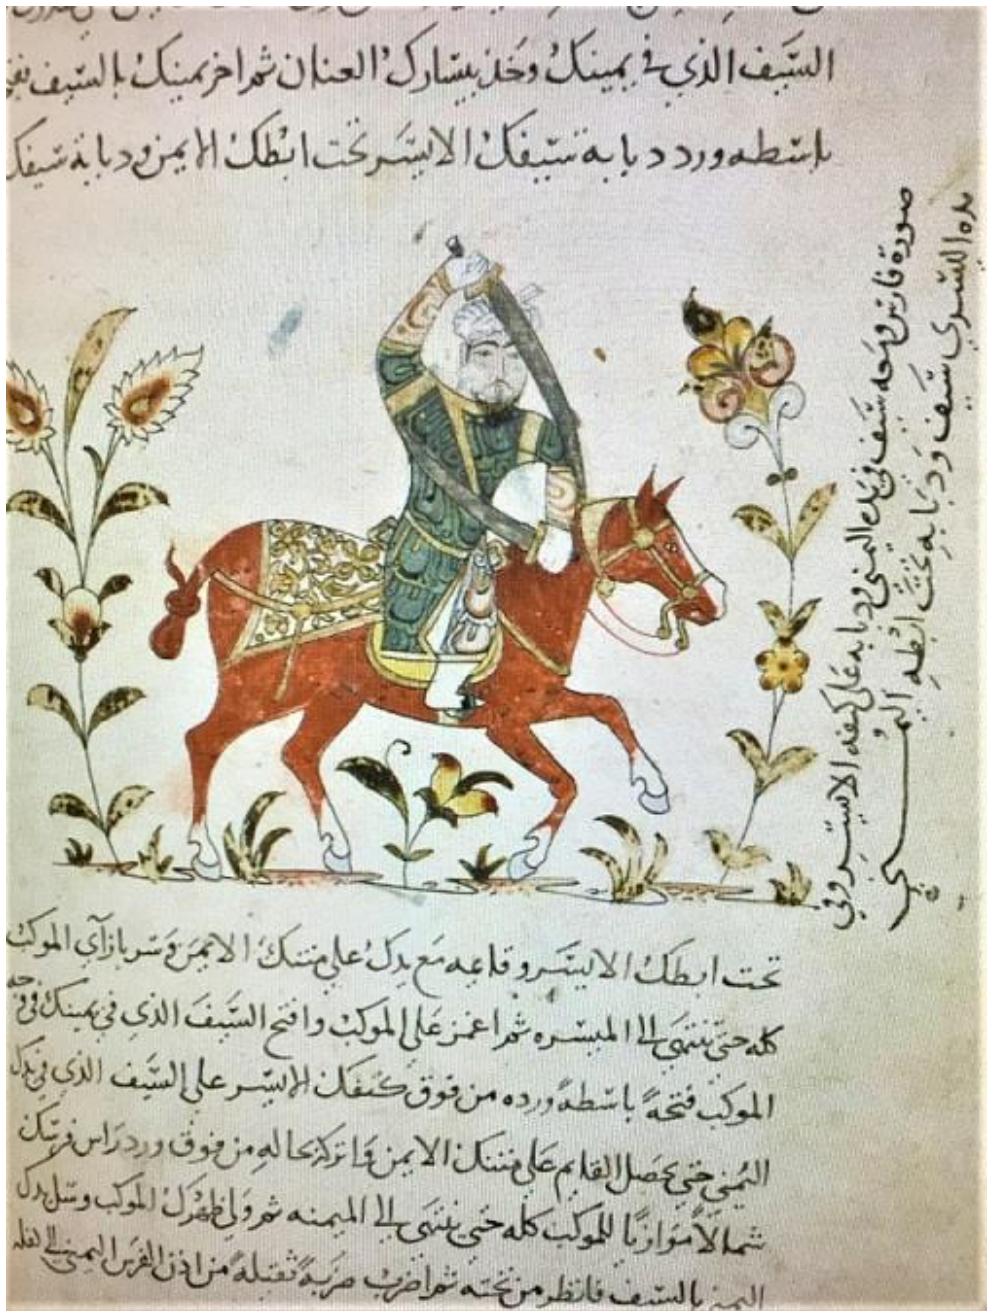 السيف الذي في يمينك وخذ بيسارك العنان ثم اخر يمينك بالسيف
باسطه ورد دبابة سيفك الايسر تحت ابطك الايمن ودبابة سيفك
صورة فارس ومعه سيف في يده اليمنى ودبابه على كتفه الايسر وفي
يده اليسرى سيف ودبابه تحت ابطه اليمـــنى
تحت ابطك الايسر وقاعه مع يدك على متنك الايمن وسر بازآي الموكب
كله حتى تنتهى الى الميسره ثم اغمز على الموكب وافتح السيف الذي في يمينك في وجه
الموكب فتحة باسطة ورده من فوق كتفك الايسر على السيف الذي في يدك
اليمنى حتى يحصل القايم على متنك الايمن واتركه بحاله من فوق ورد راس فرسك
شمالا موازيا للموكب كله حتى تنتهى الى الميمنه ثم ولي ظهرك الموكب وسل يدك
اليمنى بالسيف فانظر من تحته ثم اضرب ضربة من اذن الفرس اليمنى الى